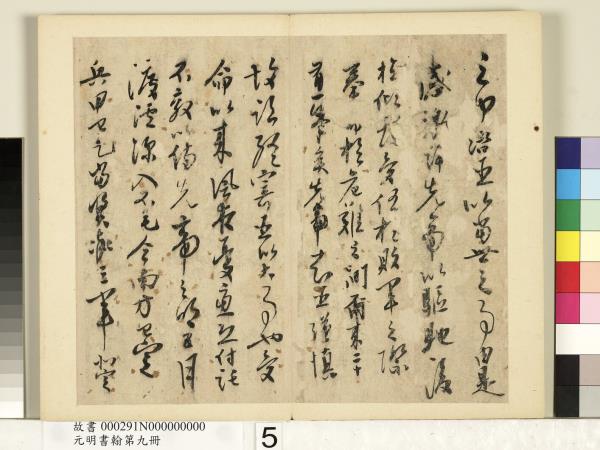 之中諮臣以當世之事由是
感激許先帝以驅馳後
值傾覆受任於敗軍之際
奉命於危難之間爾來二十
有一年矣先帝知臣謹慎
故臨終寄臣以大事也受
命以來夙夜憂慮恐付託
不效以傷先帝之明五月
渡瀘深入不毛今南方已定
兵甲已足當獎率三軍北定
故書 000291N000000000
元明書翰第九冊
5